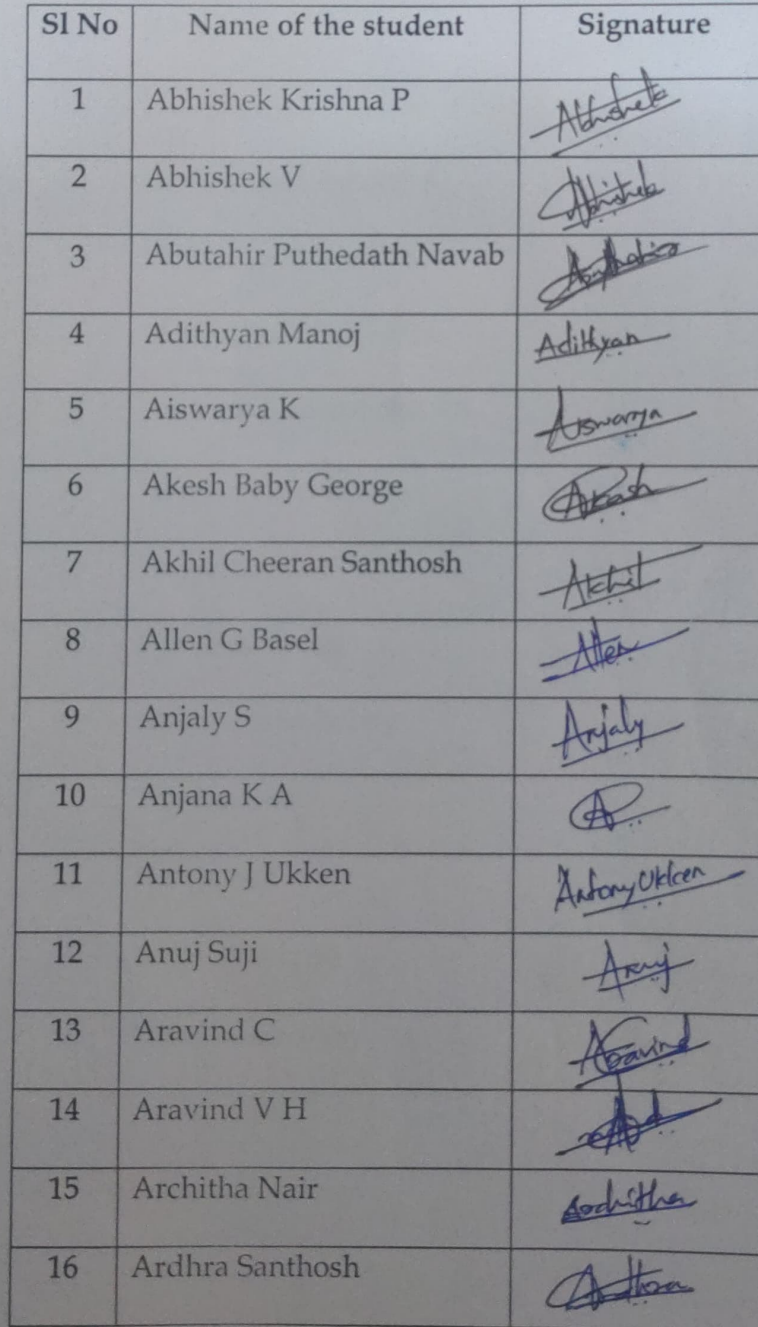 Sl No Name of the student Signature
1 Abhishek Krishna P Abhishek
2 Abhishek V Abhishek
3 Abutahir Puthedath Navab
4 Adithyan Manoj Adithyan
5 Aiswarya K Aiswarya
6 Akesh Baby George Akash
7 Akhil Cheeran Santhosh Akhil
8 Allen G Basel Allen
9 Anjaly S Anjaly
10 Anjana K A A
11 Antony J Ukken Antony Ukken
12 Anuj Suji Anuj
13 Aravind C Aravind
14 Aravind V H
15 Architha Nair Architha
16 Ardhra Santhosh Ardhra